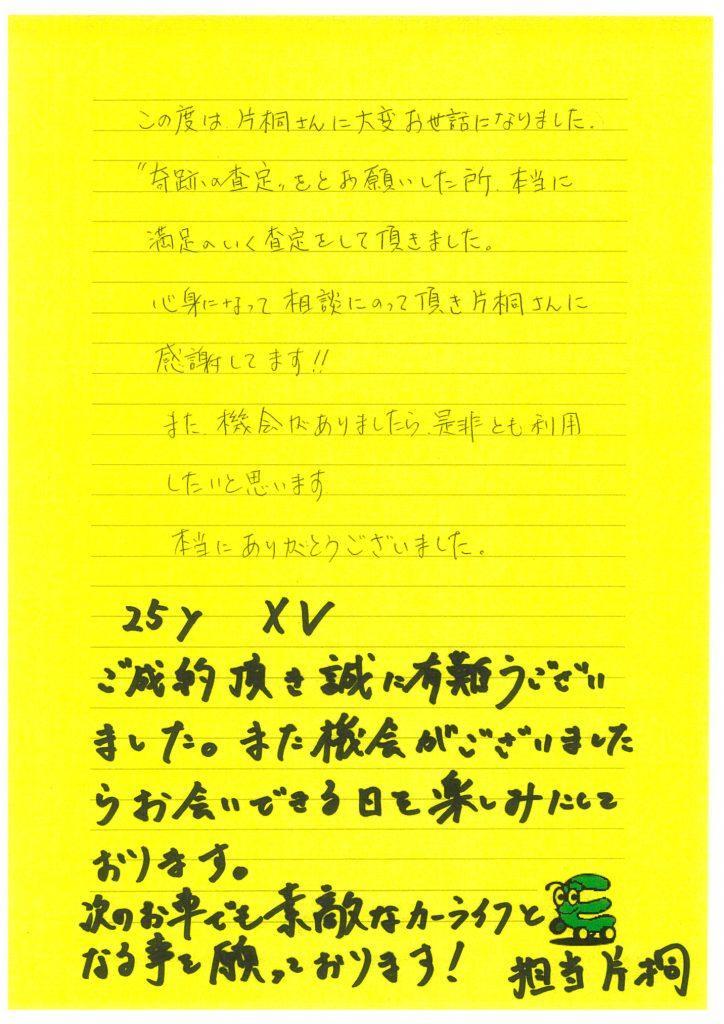 この度は、片桐さんに大変お世話になりました。
"奇跡の査定"をとお願いした所、本当に
満足のいく査定をして頂きました。
心身になって相談にのって頂き片桐さんに
感謝してます!!
また、機会がありましたら、是非とも利用
したいと思います
本当にありがとうございました。
25y XV
ご成約頂き誠に有難うござい
ました。また機会がございました
らお会いできる日を楽しみにして
おります。
次のお車でも素敵なカーライフと
なる事を願っております!
担当片桐